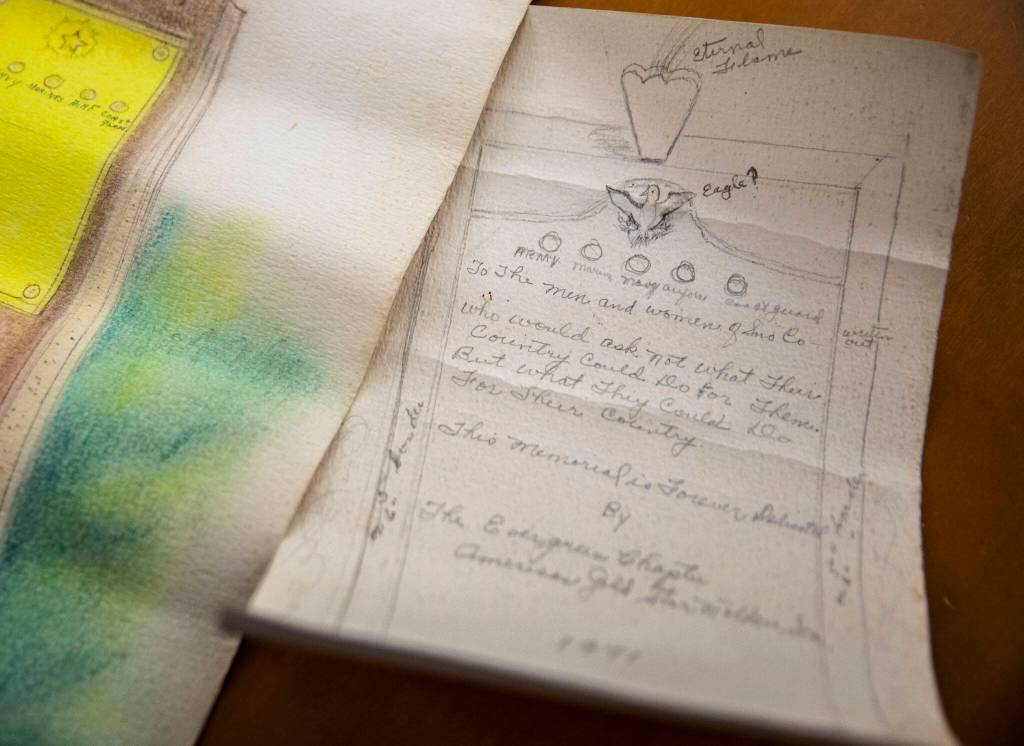 NAVY Marines Air F Coast Guard
eternal
Flame
Eagle?
ARMY marine navy airforce coast guard
To The men and women of Sno Co
who would ask not what Their
Country Could Do for Them.
But what They Could Do
For Their Country.
This Memorial is Forever Dedicated
By
The Evergreen Chapter
American Gold Star Mothers Inc
written
out
border